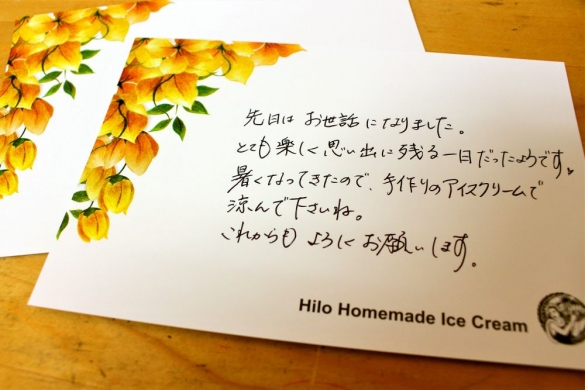 先日は お世話になりました。
とても楽しく思い出に残る一日だったようです♥
暑くなってきたので、手作りのアイスクリームで
涼んで下さいね。
これからも よろしくお願いします。
Hilo Homemade Ice Cream